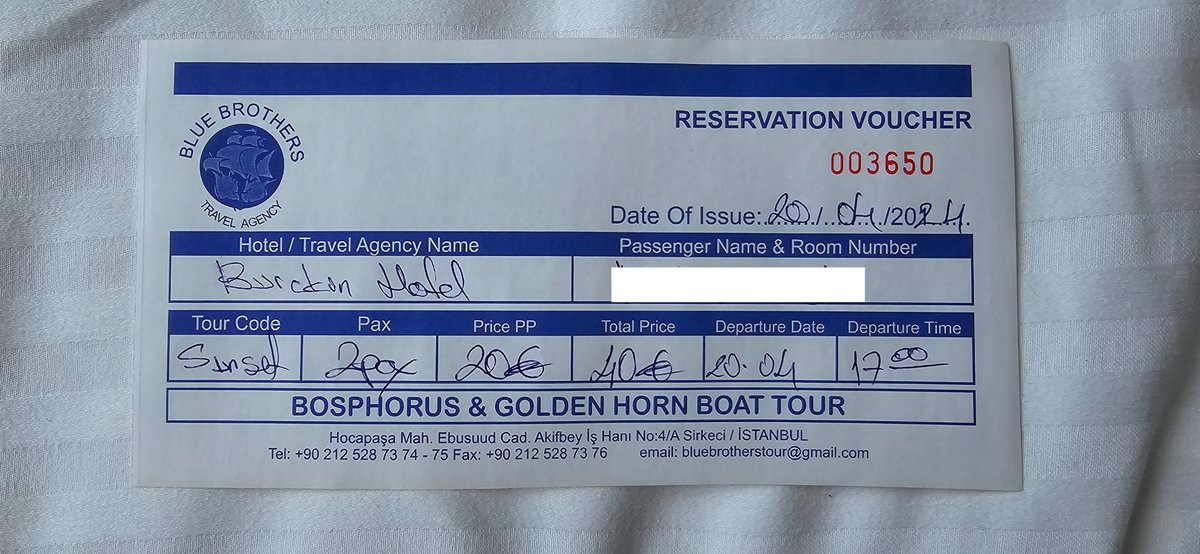 BLUE BROTHERS
TRAVEL AGENCY
RESERVATION VOUCHER
003650
Date Of Issue: 20/04/2024
Hotel / Travel Agency Name Passenger Name & Room Number
Hotel
Tour Code Pax Price PP Total Price Departure Date Departure Time
Sunset 2pax 20€ 40€ 20.04 17 00
BOSPHORUS & GOLDEN HORN BOAT TOUR
Hocapaşa Mah. Ebusuud Cad. Akifbey İş Hanı No:4/A Sirkeci / İSTANBUL
Tel: +90 212 528 73 74 - 75 Fax: +90 212 528 73 76 email: bluebrotherstour@gmail.com